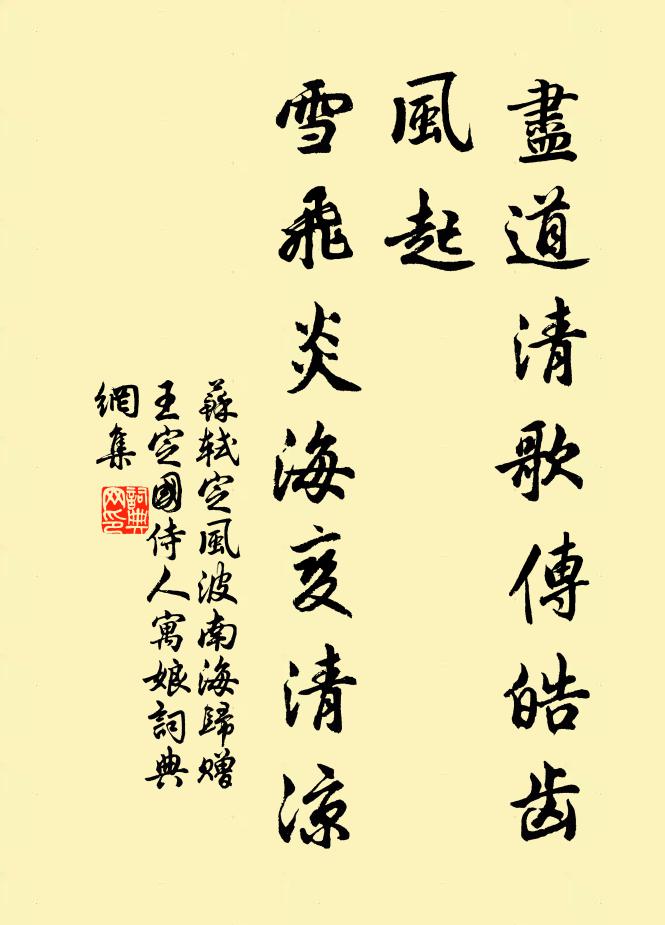 盡道清歌傳皓齒
風起
雪飛炎海変清涼
蘇軾定風波南海歸贈
王定國侍人寓娘詞典
網集
詞典
网印